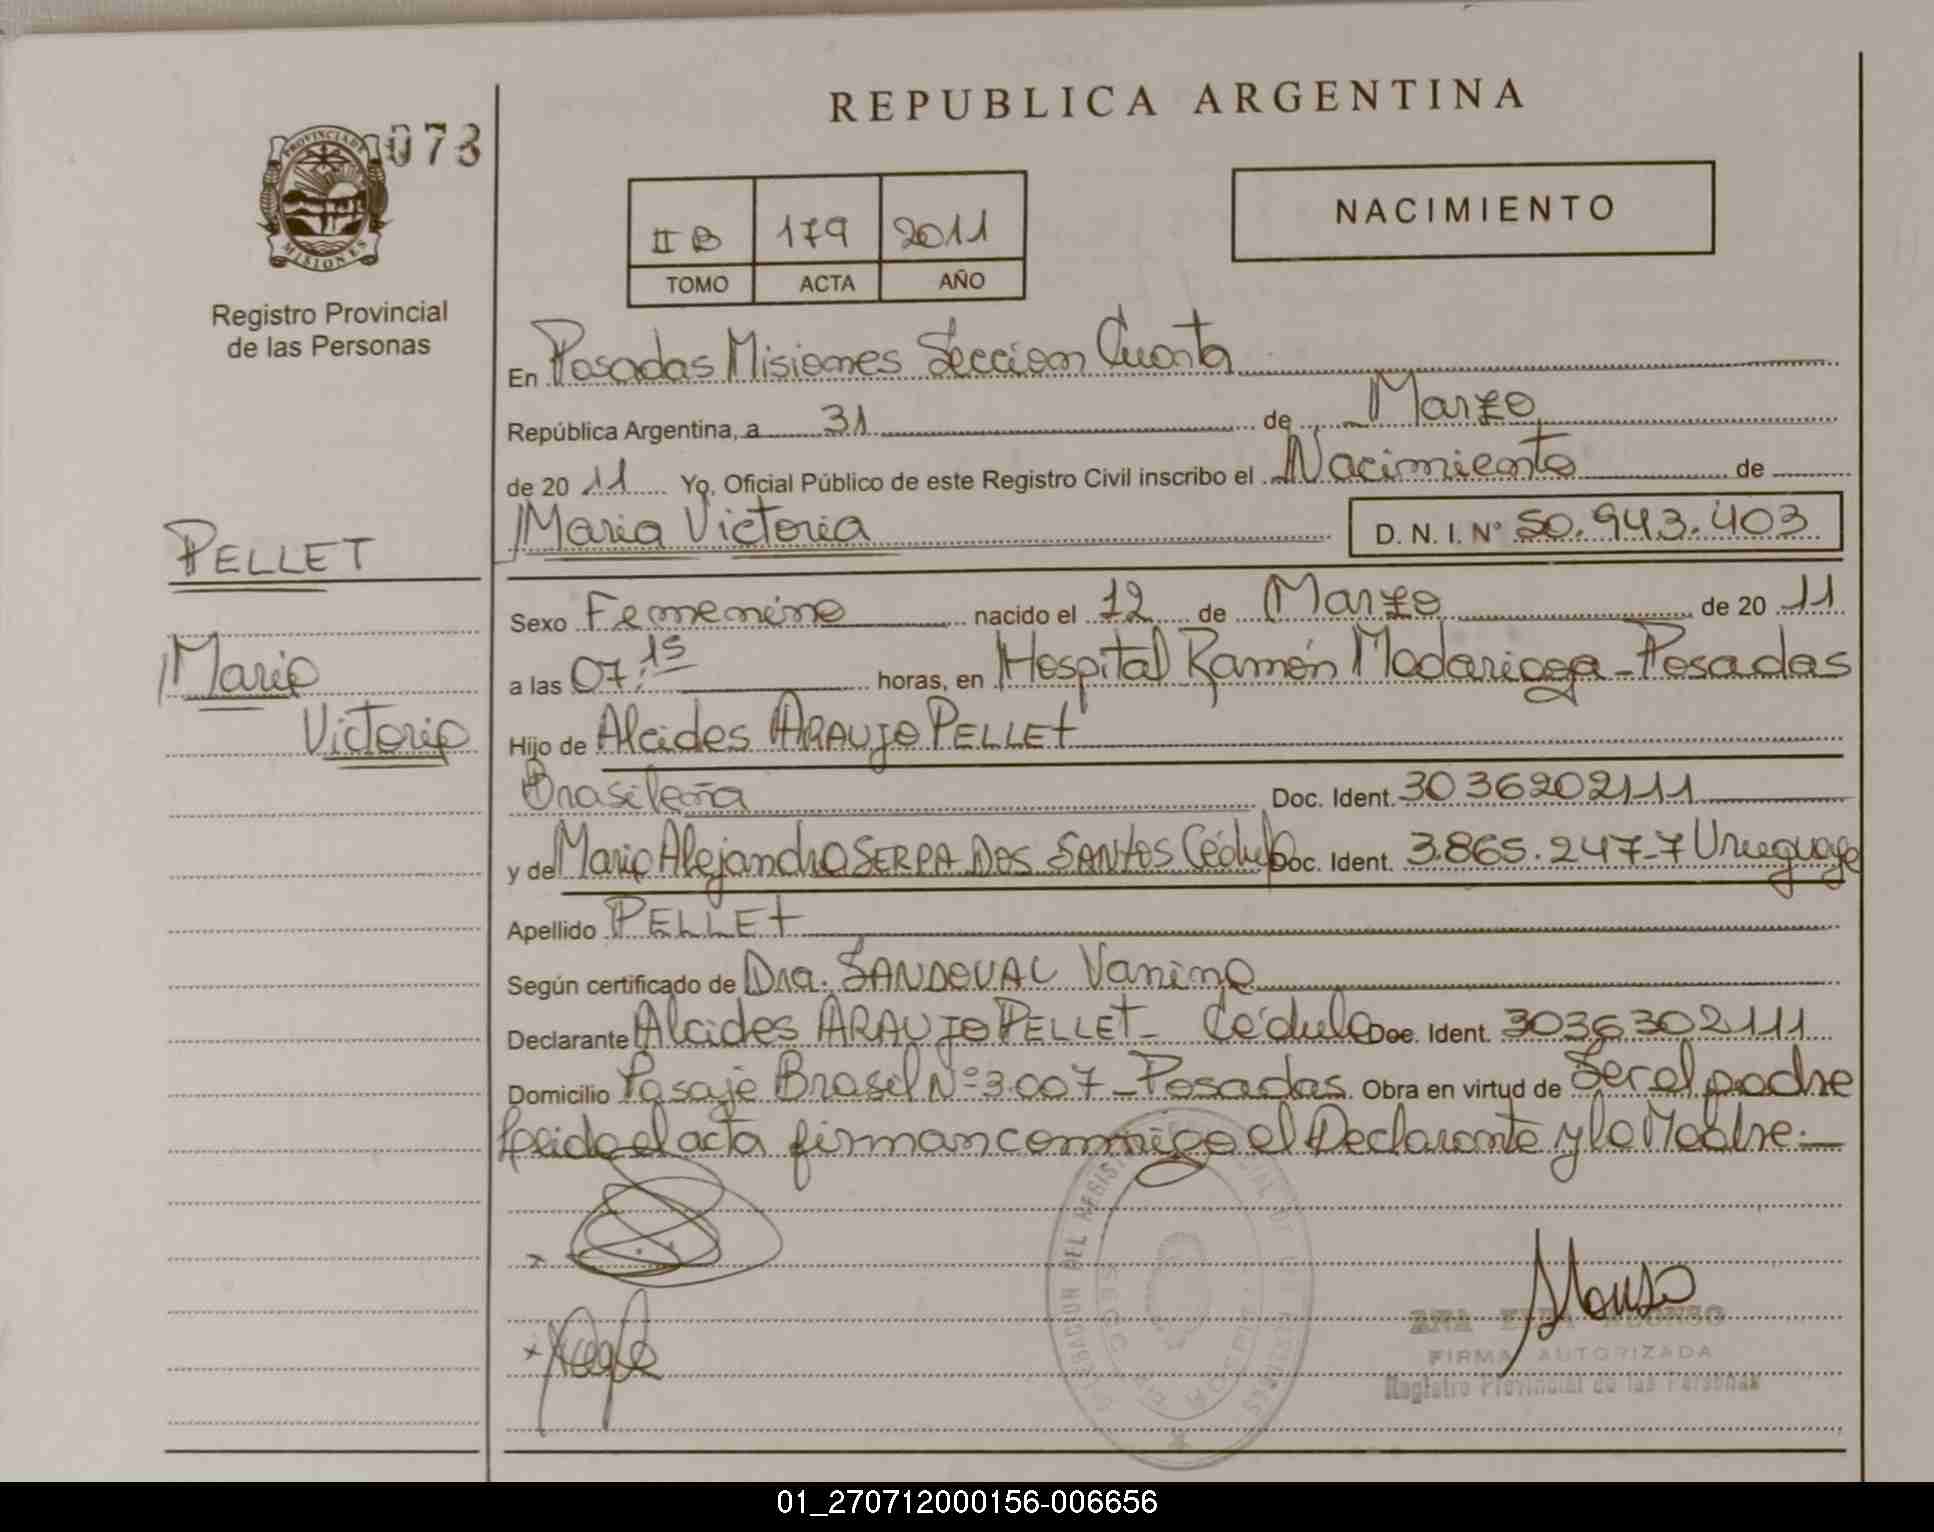 REPUBLICA ARGENTINA
073
PROVINCIA DE
MISIONES
Registro Provincial
de las Personas
II B 179 2011
TOMO ACTA AÑO
NACIMIENTO
En Posadas Misiones Seccion Cuarta
República Argentina, a 31 de Marzo
de 20 11 Yo, Oficial Público de este Registro Civil inscribo el Nacimiento de
Maria Victoria D. N. I. Nº 50.943.403
PELLET
Maria
Victoria
Sexo Femenino nacido el 12 de Marzo de 20 11
a las 07:15 horas, en Hospital Ramón Madariaga - Posadas
Hijo de Alcides ARAUJO PELLET
Brasileña Doc. Ident. 3036202111
y de Maria Alejandra SERPA DOS SANTOS Cédula Doc. Ident. 3.865.247-7 Uruguaya
Apellido PELLET
Según certificado de Dra. SANDOVAL Vanina
Declarante Alcides ARAUJO PELLET - Cédula Doc. Ident. 3036302111
Domicilio Pasaje Brasil Nº 3.007 - Posadas. Obra en virtud de Ser el padre
Leida el acta firman conmigo el Declarante y la Madre.-
x
x
Alonso
ANA ALONSO
FIRMA AUTORIZADA
Registro Provincial de las Personas
01_270712000156-006656